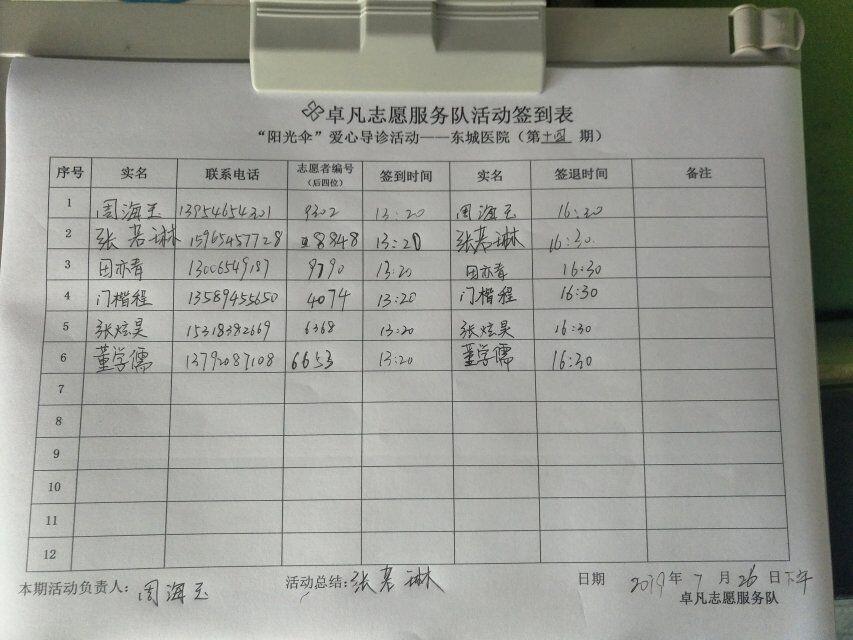 卓凡志愿服务队活动签到表
“阳光伞”爱心导诊活动——东城医院（第十四期）
序号 实名 联系电话 志愿者编号（后四位） 签到时间 实名 签退时间 备注
1 周海玉 13954654301 9302 13:20 周海玉 16:30
2 张若琳 15965457728 8848 13:20 张若琳 16:30
3 田亦青 13006549187 9790 13:20 田亦青 16:30
4 门楷程 13589455650 4074 13:20 门楷程 16:30
5 张炫昊 15318382669 6368 13:20 张炫昊 16:30
6 董学儒 13792087108 6653 13:20 董学儒 16:30
7
8
9
10
11
12
本期活动负责人：周海玉 活动总结：张若琳 日期 2019年7月26日下午
卓凡志愿服务队